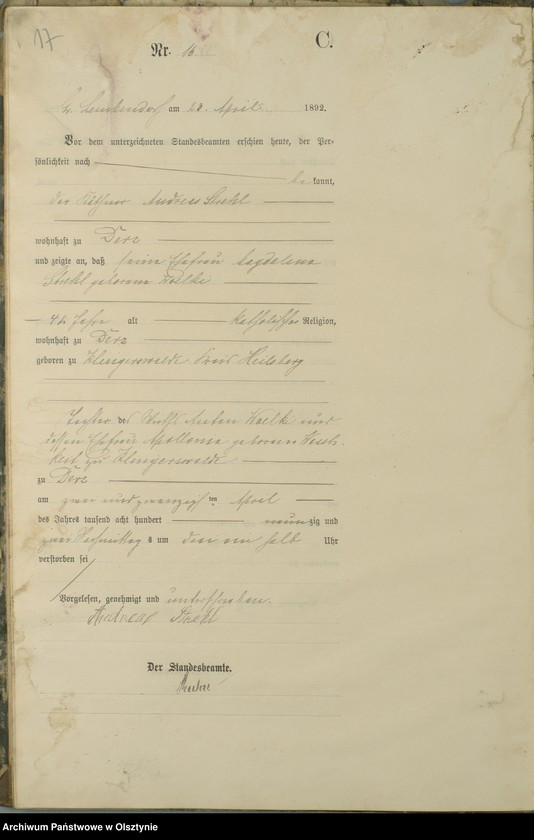 17
C.
Nr. 16
am April 1892.
Vor dem unterzeichneten Standesbeamten erschien heute, der Per-
sönlichkeit nach
be kannt,
der Käthner Andreas Strehl
wohnhaft zu Derz
und zeigte an, daß seine Ehefrau Magdalena
geborene Woelke
Jahre alt katholischer Religion,
wohnhaft zu Derz
geboren zu Klingerswalde Kreis Heilsberg
Tochter des Anton Woelke und
dessen Ehefrau Apollonia geborenen
zu Klingerswalde
zu Derz
am zwei und zwanzigsten April
des Jahres tausend acht hundert neunzig und
zwei Nachmittags um halb Uhr
verstorben sei
Vorgelesen, genehmigt und unterschrieben.
Andreas Strehl
Der Standesbeamte.
Archiwum Państwowe w Olsztynie